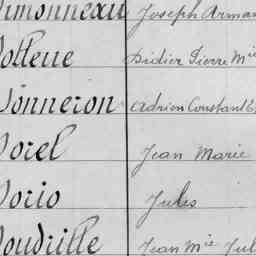 imonneau Joseph Arman
olleue Didier Pierre Mie
onneron Adrien Constant E
orel Jean Marie
orio Jules
oudrille Jean Mie Jul